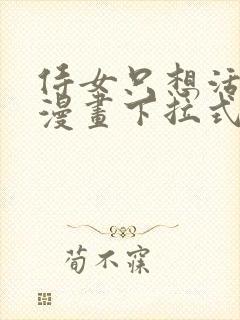 侍女只想活
漫畫下拉式
荀不寐